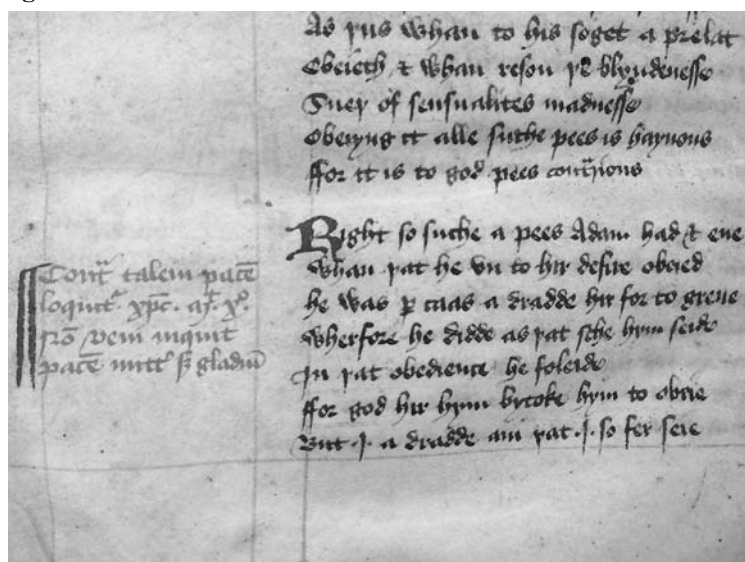 As þus whan to his soget a prelat
Obeieth & whan reson þe blyndenesse
Suer of sensualites madnesse
Obeiyng it alle suche pees is haynous
ffor it is to god pees cont̄rious
Right so suche a pees Adam had & eue
Whan þat he vn to hir desire obeied
he was ꝑ caas a dradde hir for to greue
Wherfore he didde as þat sche hym seide
In þat obedience he foleide
ffor god hir hym bytoke hym to obeie
But .I. a dradde am þat .I. so fer seie
Cont̄ talem pacē
loquit᷑ xp̄c. xº.
Nō veni inquit
pacē mitt᷑ s̄ gladiū